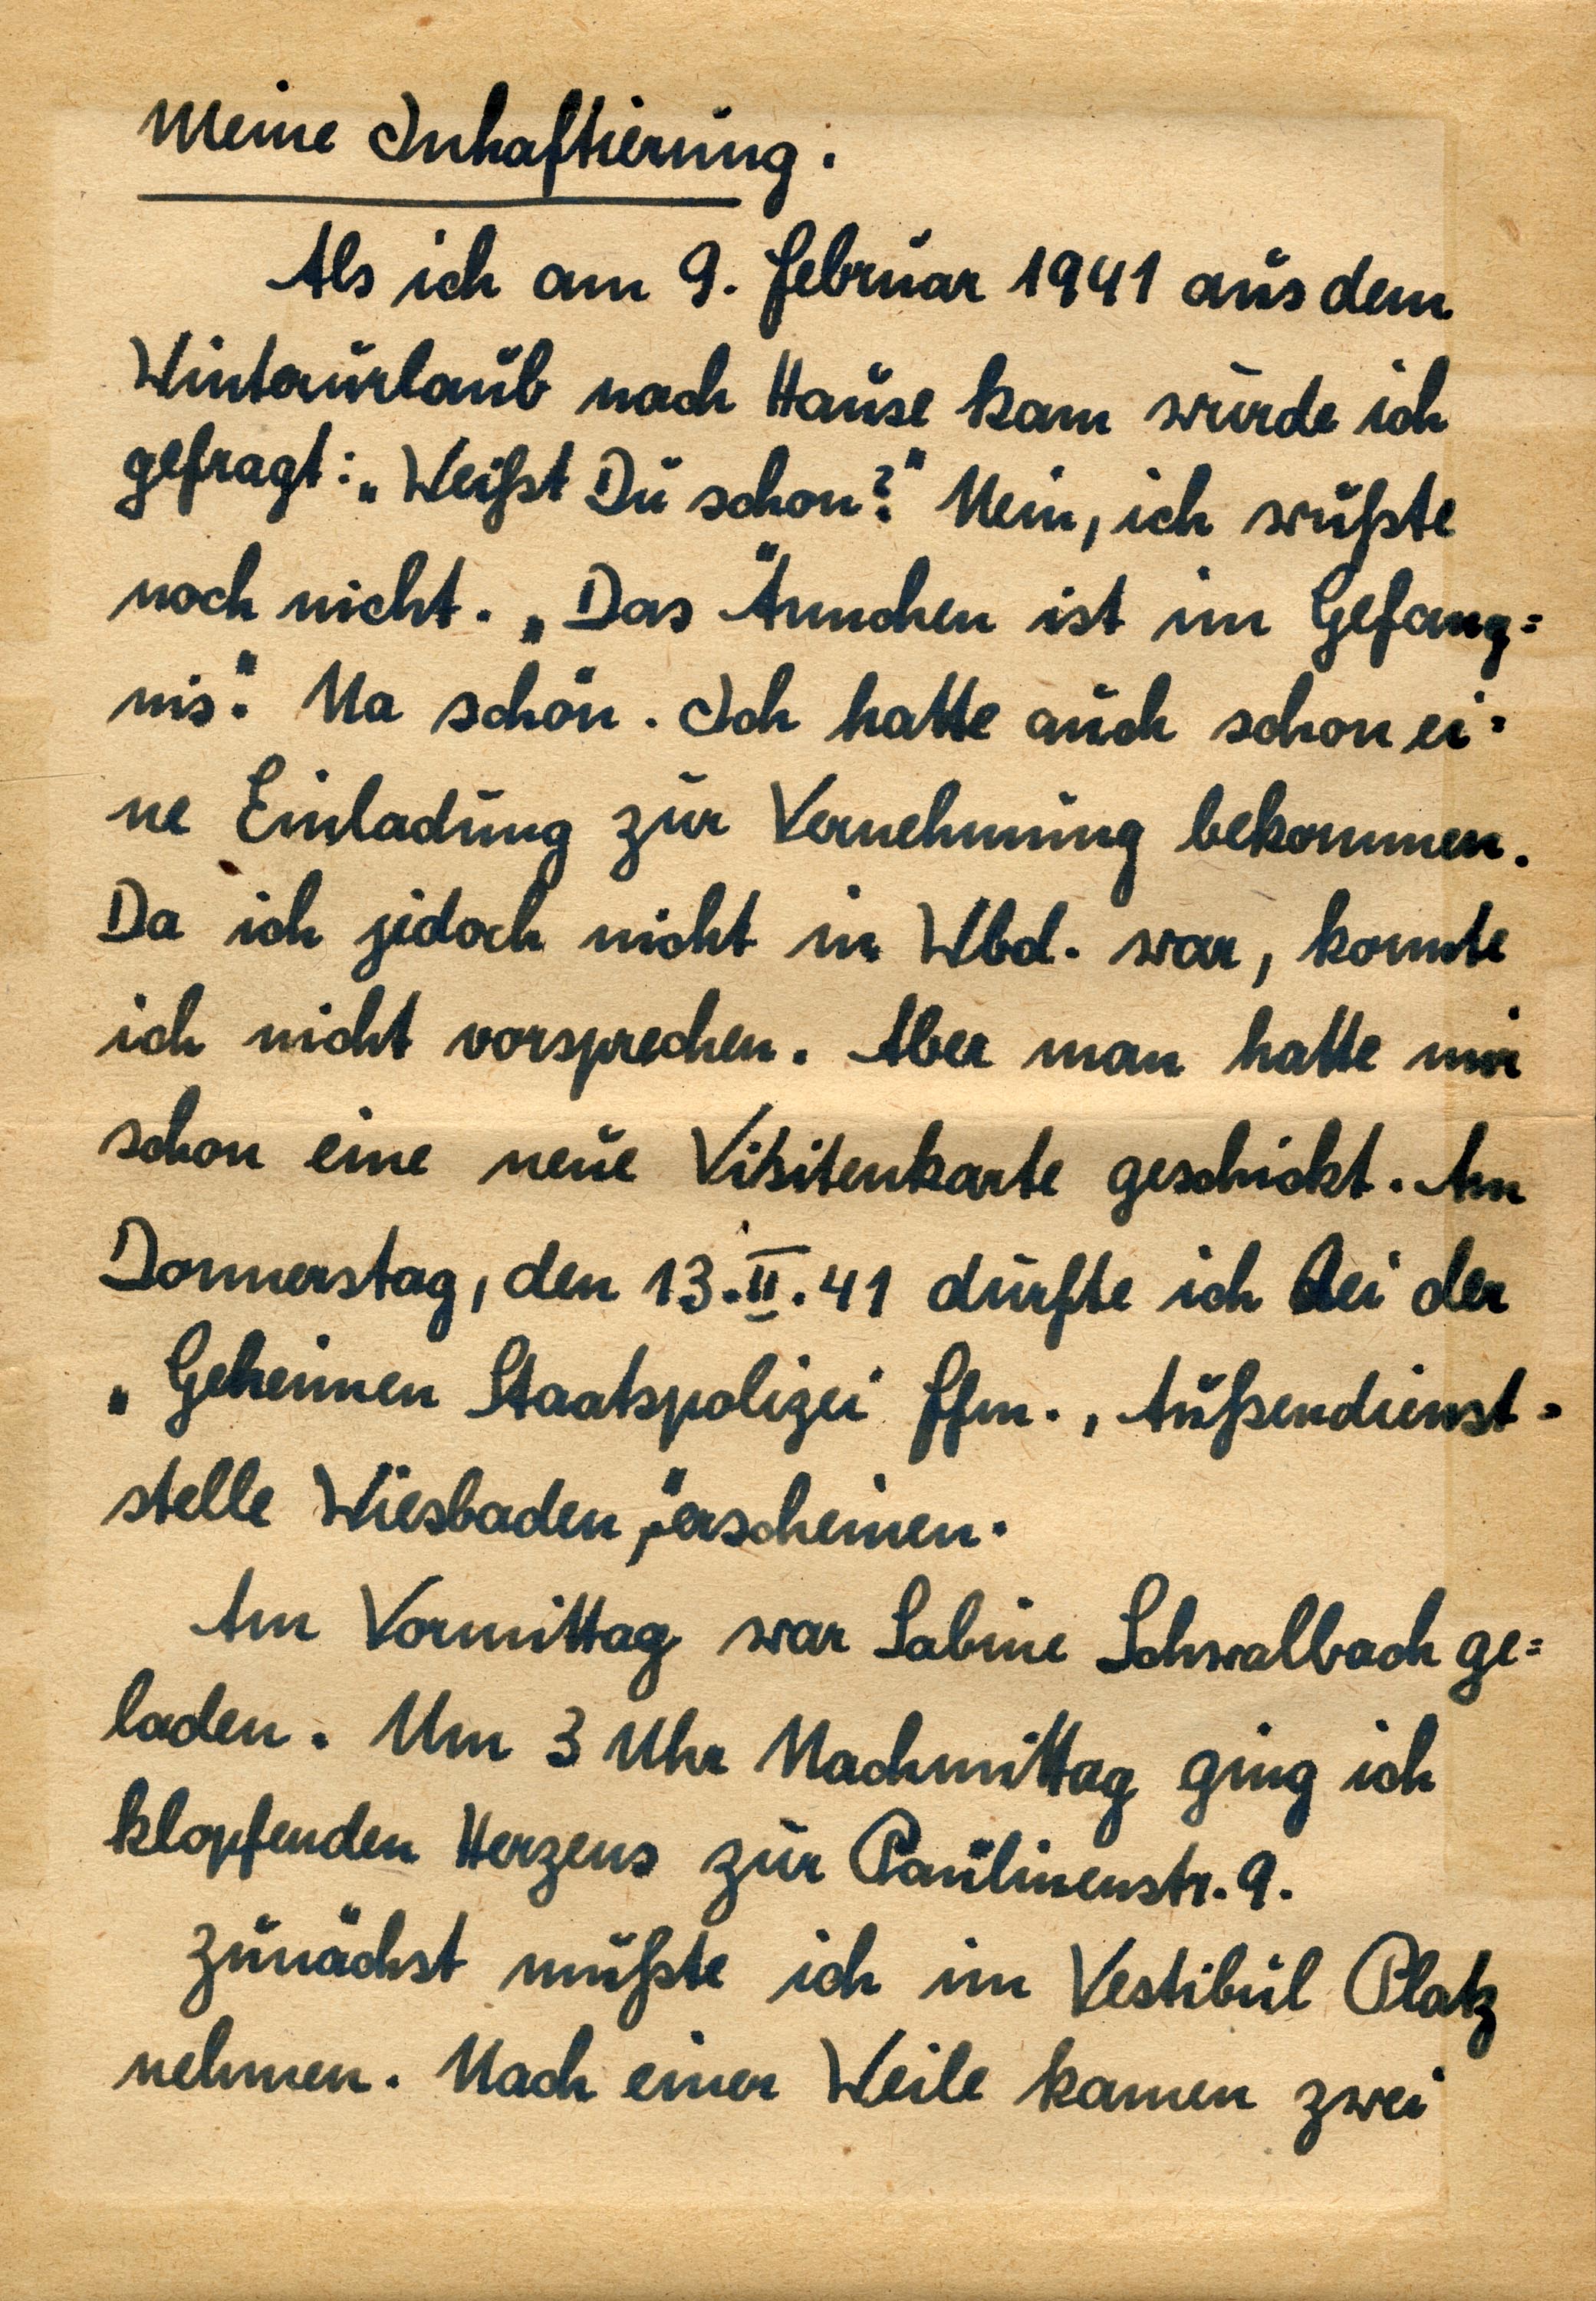 Meine Inhaftierung.
Als ich am 9. Februar 1941 aus dem
Winterurlaub nach Hause kam wurde ich
gefragt: „Weißt Du schon?" Nein, ich wußte
noch nicht. „Das Ännchen ist im Gefäng=
nis." Na schön. Ich hatte auch schon ei=
ne Einladung zur Vernehmung bekommen.
Da ich jedoch nicht in Wbd. war, konnte
ich nicht vorsprechen. Aber man hatte mir
schon eine neue Visitenkarte geschickt. Am
Donnerstag, den 13.II.41 durfte ich bei der
„Geheimen Staatspolizei Ffm., Außendienst=
stelle Wiesbaden," erscheinen.
Am Vormittag war Sabine Schwalbach ge=
laden. Um 3 Uhr Nachmittag ging ich
klopfenden Herzens zur Paulinenstr. 9.
Zunächst mußte ich im Vestibül Platz
nehmen. Nach einer Weile kamen zwei